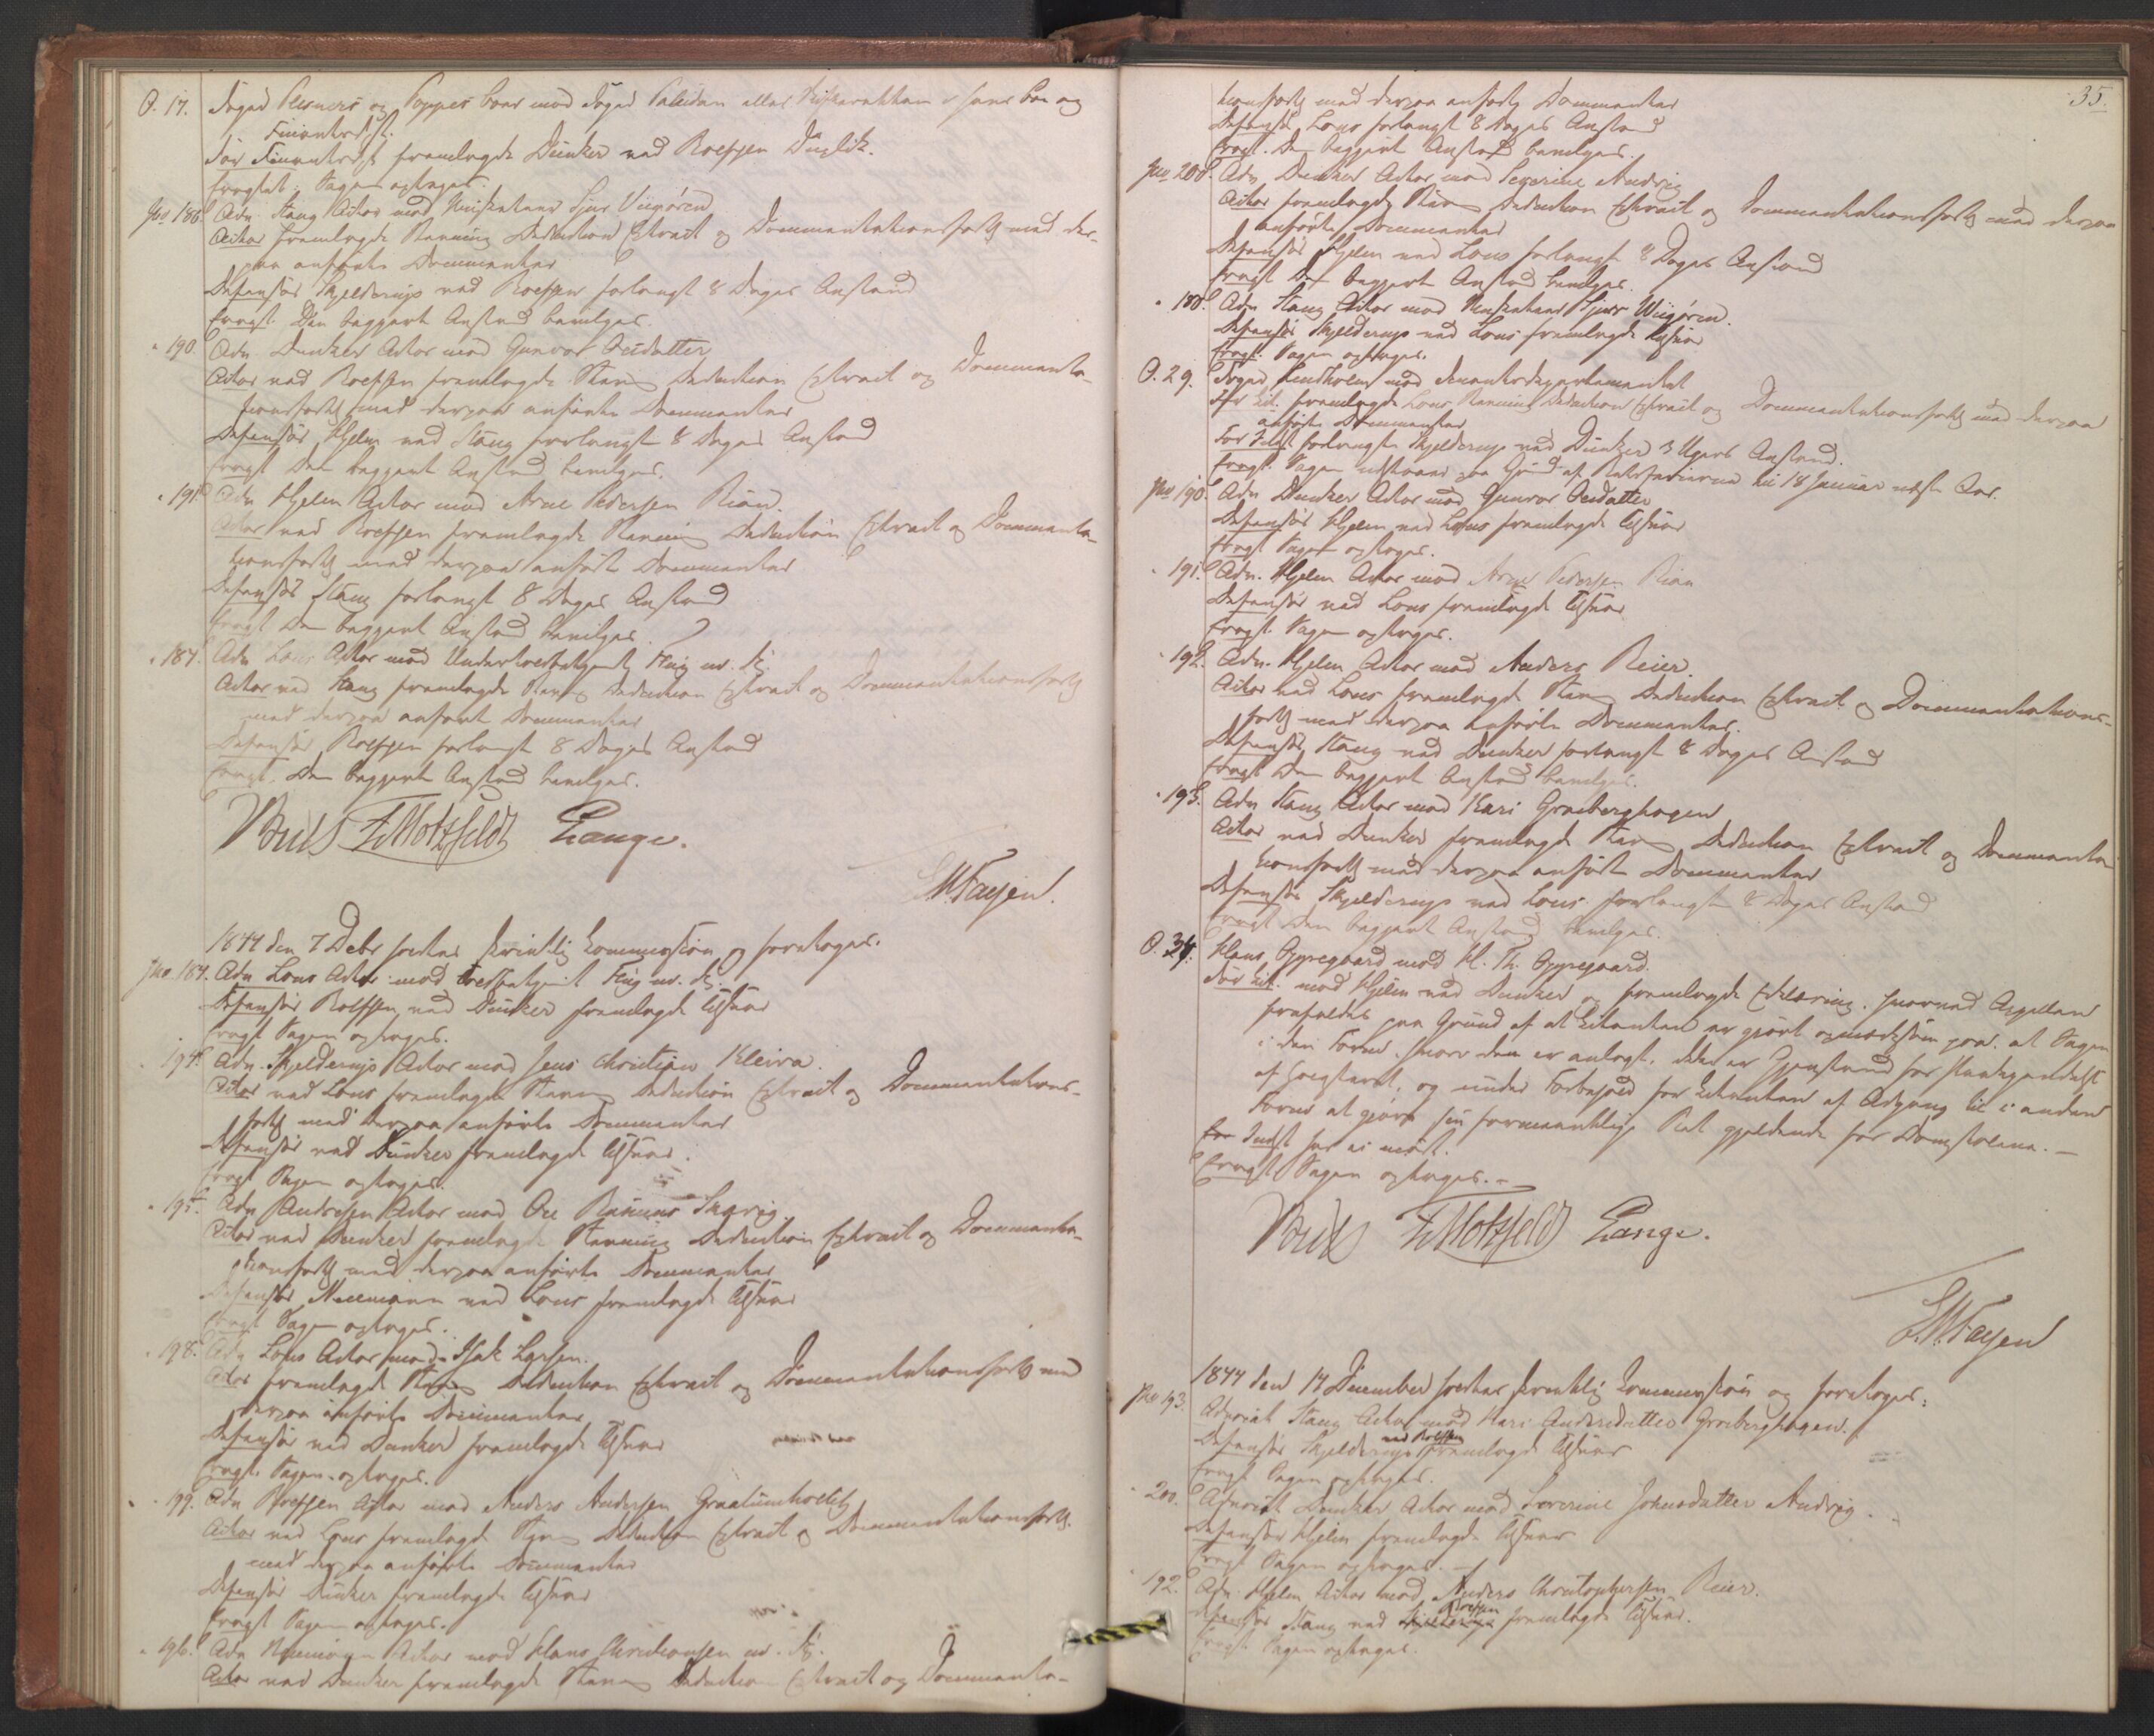 O. 17. Foged Plesners og Poppes Boer mod Foged Paludan eller
Finantsdpt.
For Finantsdpt fremlagde Dunker ved Rolfsen Duplik.
fragtet: Sagen optages.
No 186. Adv. Stang Actor mod Sjur Viigören
Actor fremlagde Stævning Deduction Extract og Documentationsforts med der-
paa anførte Documenter
Defensor Hjelderup ved Rolfsen forlangt 8 Dages Anstand
fragt. Den begjærte Anstand bevilges.
" 190. Adv. Dunker Actor mod Gunvor Olsdatter
Actor ved Rolfsen fremlagde Stævn Deduction Extract og Documenta-
tionsforts med derpaa anførte Documenter
Defensor Hjelm ved Stang forlangt 8 Dages Anstand
fragt Den begjærte Anstand bevilges.
" 191. Adv Hjelm Actor mod Arne Pedersen Rian.
Actor ved Rolfsen fremlagde Stævning Deduction Extract og Documenta-
tionsforts med derpaa anførte Documenter
Defensor Stang forlangt 8 Dages Anstand
fragt Den begjærte Anstand bevilges.
" 187. Adv Lous Actor mod Undertoldbetjent m. fl.
Actor ved Stang fremlagde Stævn Deduction Extract og Documentationsforts
med derpaa anførte Documenter
Defensor Rolfsen forlangt 8 Dages Anstand
fragt. Den begjærte Anstand bevilges.
Motzfeldt Lange.
1844 den 7 Debr holdtes Commission og foretoges.
No 187. Adv Lous Actor mod Toldbetjent m. fl.
Defensor Rolfsen ved Dunker fremlagde Tilsvar
fragt Sagen optages.
" 194. Adv. Hjelderup Actor mod Jens Christian Kleiva.
Actor ved Lous fremlagde Stævn Deduction Extract og Documentations-
forts med derpaa anførte Documenter
Defensor ved Dunker fremlagde Tilsvar.
fragt Sagen optages.
" 195. Adv Andresen Actor mod Ole
Actor ved Dunker fremlagde Stævning Deduction Extract og Documenta-
tionsforts med derpaa anførte Documenter
Defensor Neumann ved Lous fremlagde Tilsvar
fragt Sagen optages.
" 198. Adv Lous Actor mod Isak Larsen.
Actor fremlagde Stævn Deduction Extract og Documentationsforts med
derpaa anførte Documenter
Defensor ved Dunker fremlagde Tilsvar
fragt. Sagen optages.
" 199. Adv Rolfsen Actor mod Anders Andersen
Actor ved Lous fremlagde Stævn Deduction Extract og Documentationsforts.
med derpaa anførte Documenter
Defensor Dunker fremlagde Tilsvar
fragt Sagen optages.
" 196. Adv Neumann Actor mod Hans Christiansen m. fl.
Actor ved Dunker fremlagde Stævn Deduction Extract og Documenta-
35.
tionsforts med derpaa anførte Documenter
Defensor Lous forlangt 8 Dages Anstand
fragt. Den begjærte Anstand bevilges.
No 200. Adv Dunker Actor mod Severine
Actor fremlagde Stævn Deduction Extract og Documentationsforts med derpaa
anførte Documenter
Defensor Hjelm ved Lous forlangt 8 Dages Anstand
fragt Den begjærte Anstand bevilges.
" Adv Stang Actor mod Sjur Wiigören.
Defensor Hjelderup ved Lous fremlagde Tilsvar
fragt. Sagen optages.
O. 29. Foged Lindholm mod Finantsdepartementet
For Cit. fremlagde Lous Stævning Deduction Extract og Documentationsforts med derpaa
anførte Documenter
For Indst forlangte Hjelderup ved Dunker 3 Ugers Anstand.
fragt. Sagen udstaaer paa Grund af Juleferierne til 18 Januar næste Aar.
No 190. Adv Dunker Actor mod Gunvor Olsdatter
Defensor Hjelm ved Lous fremlagde Tilsvar
fragt Sagen optages.
" 191. Adv. Hjelm Actor mod Arne Pedersen Rian
Defensor ved Lous fremlagde Tilsvar
fragt. Sagen optages.
" 192. Adv. Hjelm Actor mod Anders Reier.
Actor ved Lous fremlagde Stævn Deduction Extract og Documentations-
forts med derpaa anførte Documenter.
Defensor Stang ved Dunker forlangt 8 Dages Anstand
fragt Den begjærte Anstand bevilges.
" 193. Adv Stang Actor mod Kari Graberghagen
Actor ved Dunker fremlagde Stævn Deduction Extract og Documenta-
tionsforts med derpaa anførte Documenter
Defensor Hjelderup ved Lous forlangte 8 Dages Anstand
fragt Den begjærte Anstand bevilges.
O. 34. Hans Oppegaard mod H. Th. Oppegaard.
For Cit. mød Hjelm ved Dunker og fremlagde Erklæring, hvorved Appellen
frafaldes paa Grund af at Citanten er gjort opmærksom paa, at Sagen
i den Form, hvori den er anlagt, ikke er Gjenstand for
af Høiesteret, og under Forbehold for Citanten af Adgang til i anden
Form at gjøre sin formeentlige Ret gjeldende for Domstolene. —
For Indst har ei mødt.
fragt Sagen optages. —
Motzfeldt Lange.
1844 den 14 December holdtes Commission og foretoges:
No 193. Advocat Stang Actor mod Kari Andersdatter Graberghagen.
Defensor Hjelderup ved Rolfsen fremlagde Tilsvar
fragt Sagen optages.
" 200. Advocat Dunker Actor mod Severine Johnsdatter
Defensor Hjelm fremlagde Tilsvar
fragt Sagen optages. —
" 192. Adv. Hjelm Actor mod Anders Christophersen Reier.
Defensor Stang ved Rolfsen fremlagde Tilsvar.
fragt Sagen optages.